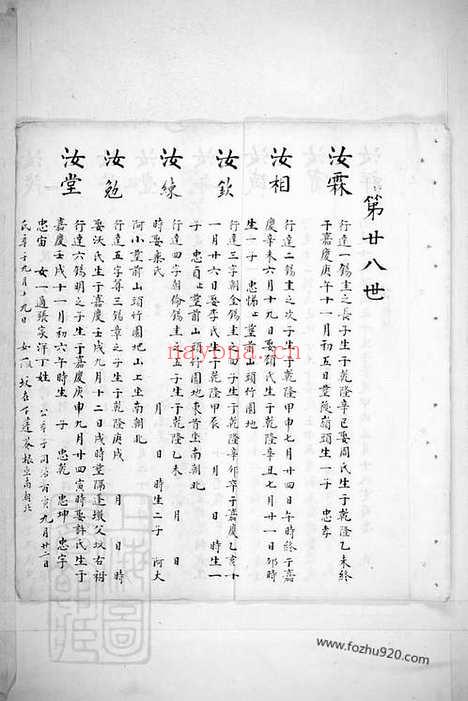 第廿八世
汝霖
行達一錫圭之長子生于乾隆辛巳娶周氏生于乾隆乙未終
于嘉慶庚午十一月初五日墓後嶺頭生一子 忠孝
汝相
行達二錫圭之次子生于乾隆甲申七月廿四日午時終于嘉
慶辛未六月十九日娶錢氏生于乾隆辛丑七月廿一日卯時
生一子 忠悌 上堂前山頭竹園地
汝欽
行達三字朝金錫圭四子生于乾隆辛卯卒于嘉慶乙亥十
一月廿六日娶李氏生于 年 月 日 時生一
子 忠 上堂前山頭竹園地東首坐南朝北
汝練
行達四字朝倫錫圭五子生于乾隆乙未 月 日
時娶 氏 月 日 時生二子 阿大
阿小堂前山頭竹園地山上坐南朝北
汝勉
行達五字尊三錫章之子生于乾隆庚戌 月 日 時
娶沃氏生于嘉慶壬戌九月十二日戌時墓 父坟右
汝堂
行達六錫明之子生于嘉慶庚申九月廿四寅時娶許氏生于
嘉慶壬戌十一月初六午時生 子 忠乾 忠坤 忠宇
忠宙 女一適張家洋丁姓 公卒于同治 九月廿二日
氏卒 年九月十九日 坟在 坐南朝北
naybna.com
www.fozhu920.com